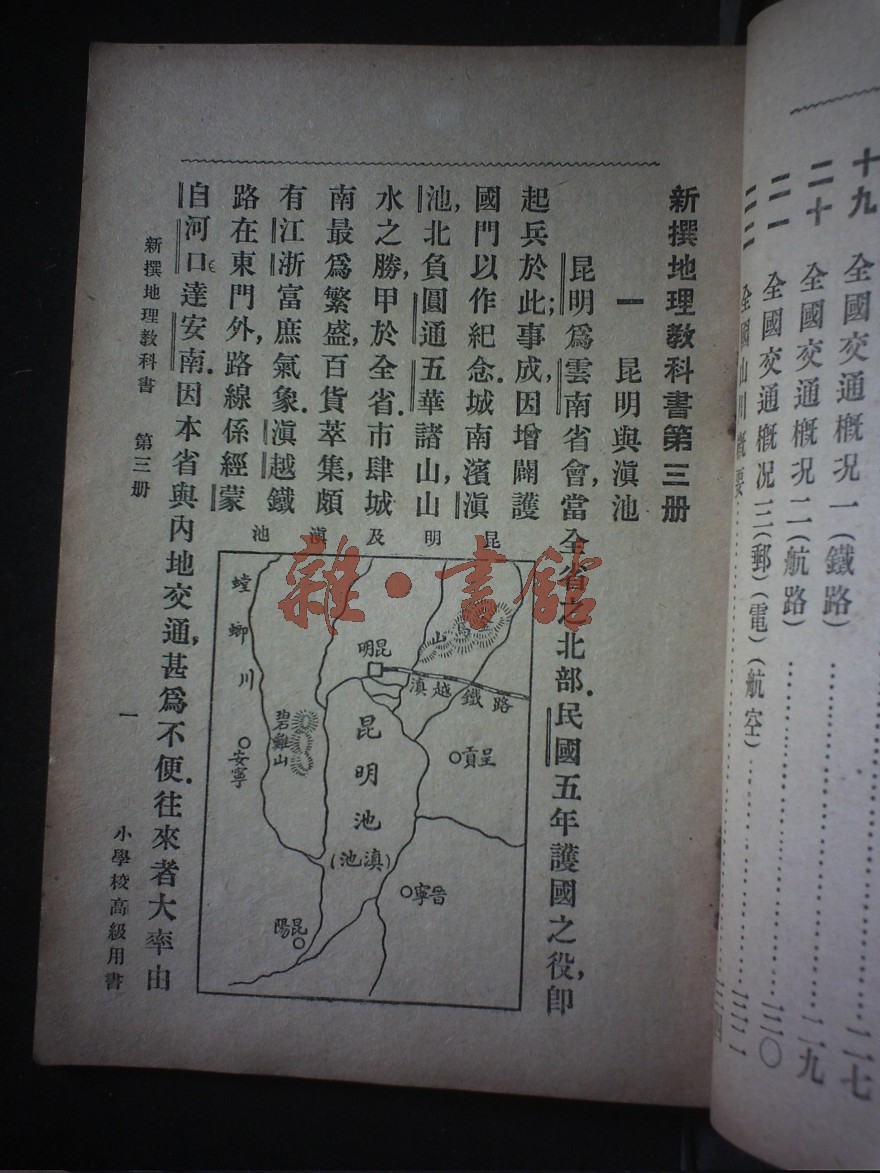 十九 全國交通概況一(鐵路)……二七
二十 全國交通概況二(航路)……二九
二一 全國交通概況三(郵)(電)(航空)……三〇
二二 全國山川概要
新撰地理教科書第三册
一 昆明與滇池
昆明爲雲南省會,當全省之北部.民國五年護國之役,卽
起兵於此;事成,因增闢護
國門以作紀念.城南濱滇
池,北負圓通五華諸山,山
水之勝,甲於全省.市肆城
南最爲繁盛,百貨萃集,頗
有江浙富庶氣象.滇越鐵
路在東門外,路線係經蒙
自河口達安南.因本省與內地交通,甚爲不便.往來者大率由
昆明及滇池
螳螂川
金馬山
昆明
滇越鐵路
碧雞山
安寧
昆明池
(滇池)
呈貢
晉寧
昆陽
新撰地理教科書 第三册
一
小學校高級用書
雜·書館